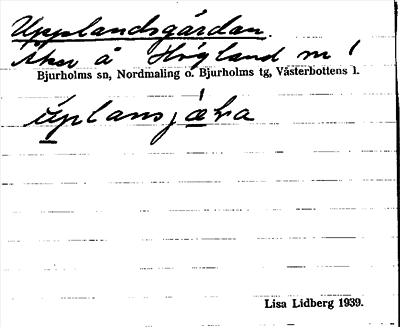 Upplandsgärdan.
Åker å Högland nr 1
Bjurholms sn, Nordmaling o. Bjurholms tg, Västerbottens l.
úplansjæ̀ra
Lisa Lidberg 1939.